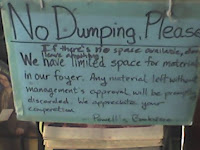 No Dumping, Please
If there's no space available,
We have limited space for material
in our foyer. Any material left without
management's approval will be promptly
discarded. We appreciate your
cooperation
Powell's Bookstore